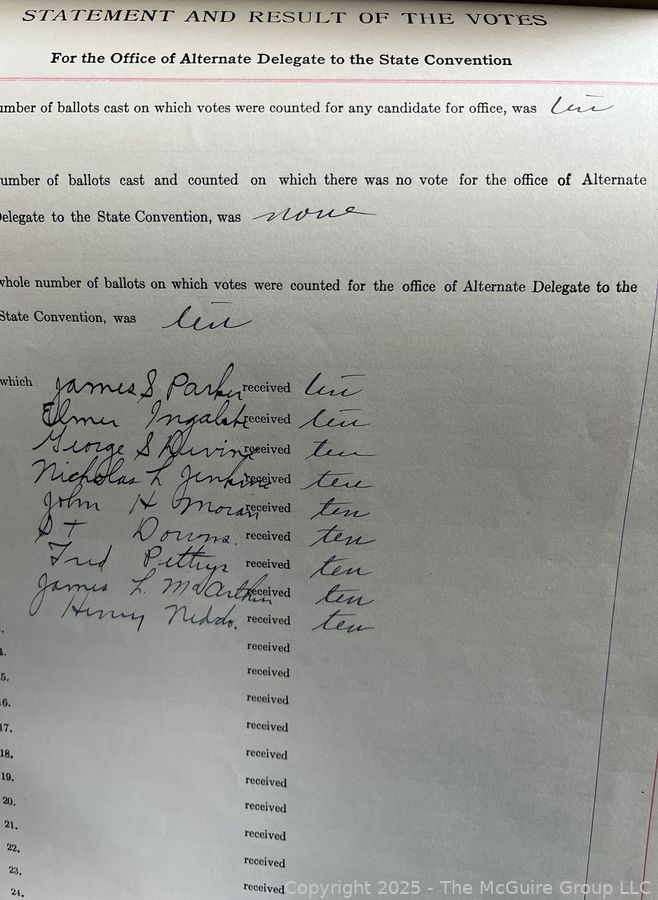 STATEMENT AND RESULT OF THE VOTES
For the Office of Alternate Delegate to the State Convention
umber of ballots cast on which votes were counted for any candidate for office, was ten
umber of ballots cast and counted on which there was no vote for the office of Alternate
elegate to the State Convention, was none
whole number of ballots on which votes were counted for the office of Alternate Delegate to the
State Convention, was ten
which James S Parker received ten
Elmer received ten
George S Devine received ten
Nicholas L Jenkins received ten
John H Moran received ten
received ten
Fred Pettys received ten
James L. McArthur received ten
Henry Neddo. received ten
4. received
5. received
6. received
17. received
18. received
19. received
20. received
21. received
22. received
23. received
24. received
Copyright 2025 - The McGuire Group LLC